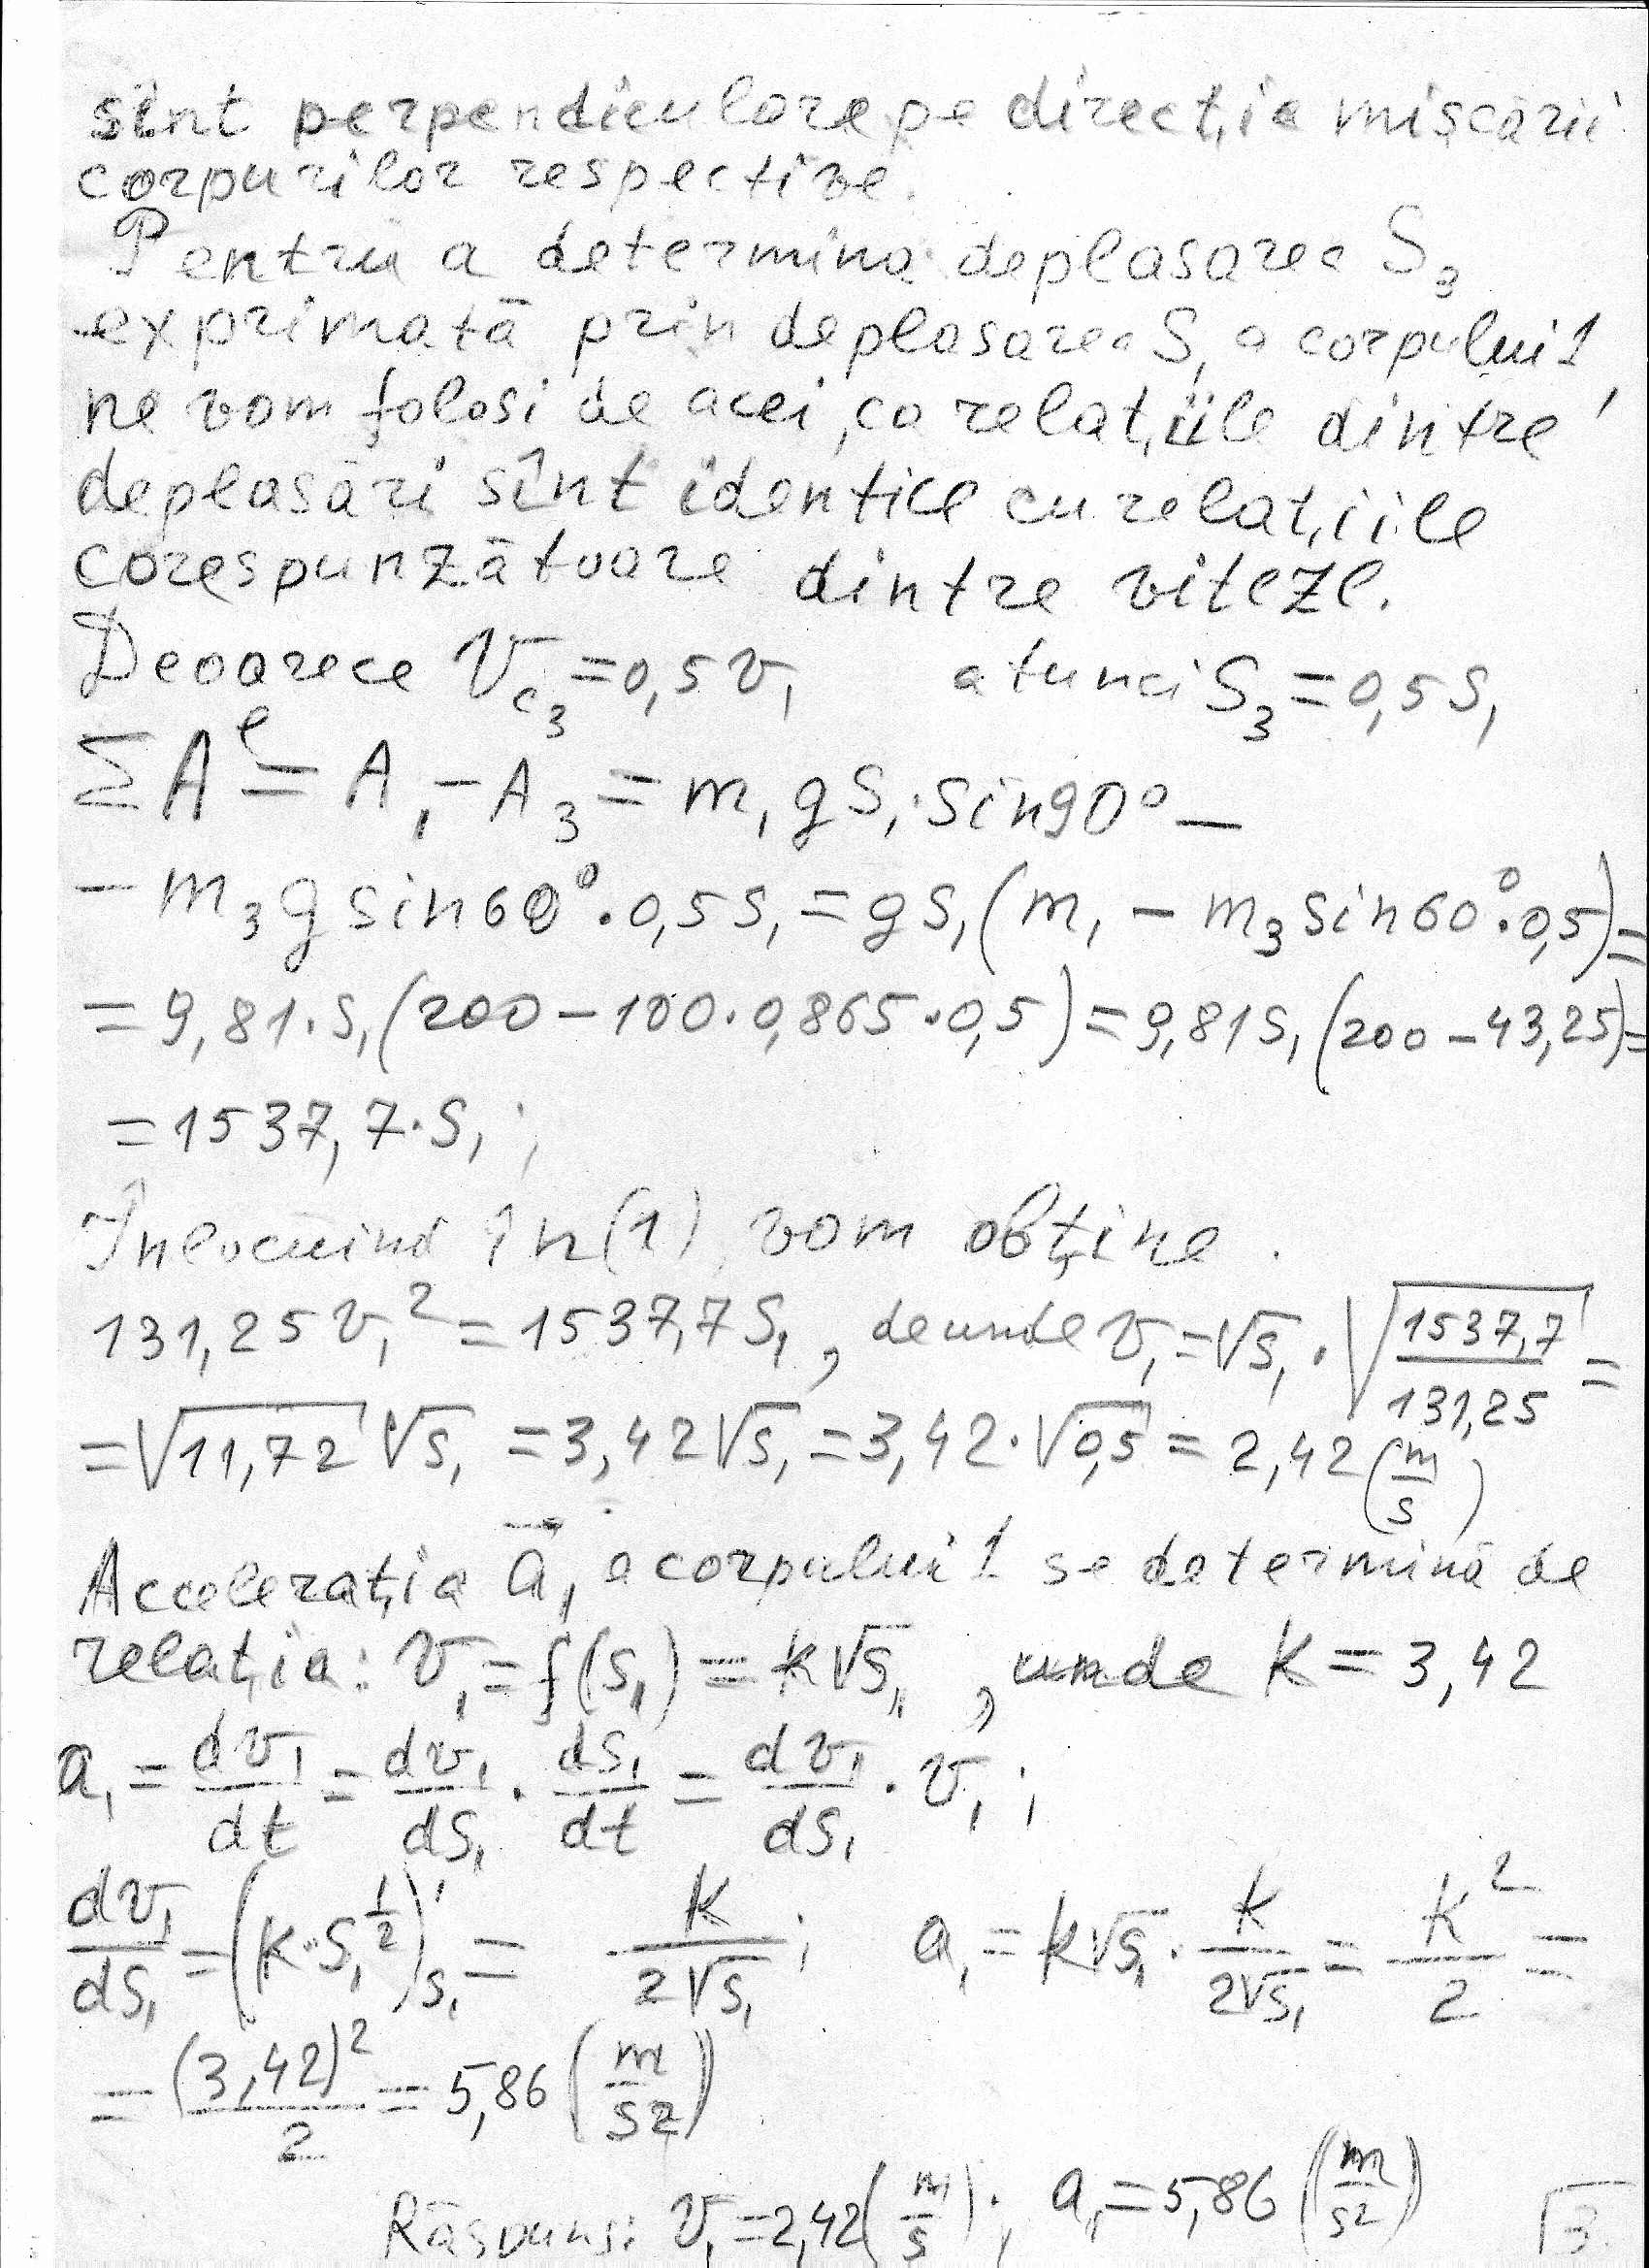 sînt perpendiculare pe direcția mișcării
corpurilor respective.
Pentru a determina deplasarea S₃
exprimată prin deplasarea S₁ a corpului 1,
ne vom folosi de acei, ca relațiile dintre
deplasări sînt identice cu relațiile
corespunzătoare dintre viteze.
Deoarece V_c₃ = 0,5 v₁ atunci S₃ = 0,5 S₁
ΣA^e = A₁ - A₃ = m₁gS₁·sin90° -
- m₃g sin60°·0,5S₁ = gS₁(m₁ - m₃ sin60°·0,5) =
= 9,81·S₁(200 - 100·0,865·0,5) = 9,81S₁(200 - 43,25) =
= 1537,7·S₁;
Înlocuind în (1) vom obține.
131,25 v₁² = 1537,7 S₁, de unde v₁ = √S₁ · √(1537,7/131,25) =
= √11,72 √S₁ = 3,42√S₁ = 3,42·√0,5 = 2,42 (m/s)
Accelerația a⃗₁ a corpului 1 se determină de
relația: v₁ = f(S₁) = k√S₁, unde k = 3,42
a₁ = dv₁/dt = dv₁/dS₁ · dS₁/dt = dv₁/dS₁ · v₁;
dv₁/dS₁ = (k·S₁^(1/2))'_S₁ = k/(2√S₁); a₁ = k√S₁ · k/(2√S₁) = k²/2 =
= (3,42)²/2 = 5,86 (m/s²)
Răspuns: v₁ = 2,42 (m/s); a₁ = 5,86 (m/s²) √3.